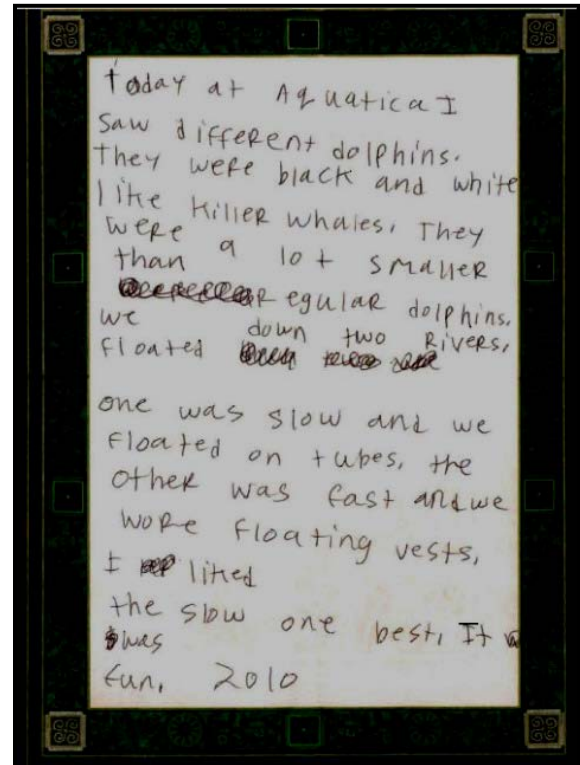 today at Aquatica I
saw different dolphins.
they were black and white
like killer whales. They
were a lot smaller
than regular dolphins.
we down two rivers,
floated
one was slow and we
floated on tubes, the
other was fast and we
wore floating vests,
I liked
the slow one best, It
was
fun, 2010